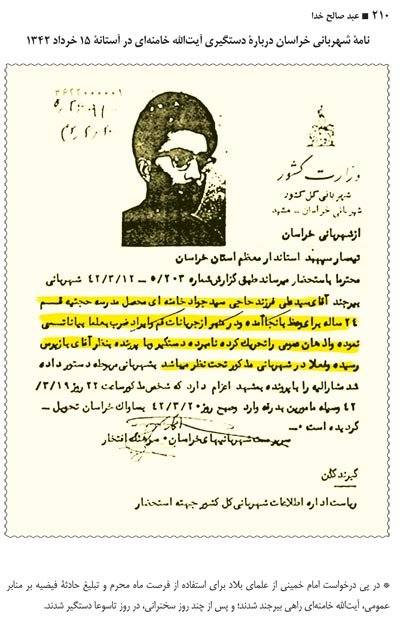 ۲۱۰ ■ عبد صالح خدا
نامهٔ شهربانی خراسان دربارهٔ دستگیری آیت‌الله خامنه‌ای در آستانهٔ ۱۵ خرداد ۱۳۴۲
وزارت کشور
شهربانی کل کشور
شهربانی خراسان – مشهد
از شهربانی خراسان
تیمسار سپهبد استاندار معظم استان خراسان
محترما باستحضار میرساند طبق گزارش شماره ۵/۲۰۳ – ۴۲/۳/۱۲ شهربانی
بیرجند آقای سید علی فرزند حاجی سید جواد خامنه ای محصل مدرسه حجتیه قم
۲۴ ساله برای وعظ بانجا آمده و در منبر از جریانات قم و ایراد ضرب بعلما بیاناتی
نموده و اذهان عمومی را تحریک کرده نامبرده دستگیر و با پرونده بنظر آقای بازپرس
رسیده و فعلا در شهربانی مذکور تحت نظر میباشد بشهربانی مربوطه دستور داده
شد مشارالیه را با پرونده بمشهد اعزام دارد که شخص مذکور ساعت ۲۲ روز ۱۹/۳/
۴۲ وسیله مامورین بدرقه وارد وصبح روز ۴۲/۳/۲۰ بساواک خراسان تحویل –
گردیده است ۰–
سرپرست شهربانیهای خراسان ۰ سرهنگ افتخار
گیرندگان
ریاست اداره اطلاعات شهربانی کل کشور جهته استحضار
* در پی درخواست امام خمینی از علمای بلاد برای استفاده از فرصت ماه محرم و تبلیغ حادثهٔ فیضیه بر منابر
عمومی، آیت‌الله خامنه‌ای راهی بیرجند شدند؛ و پس از چند روز سخنرانی، در روز تاسوعا دستگیر شدند.